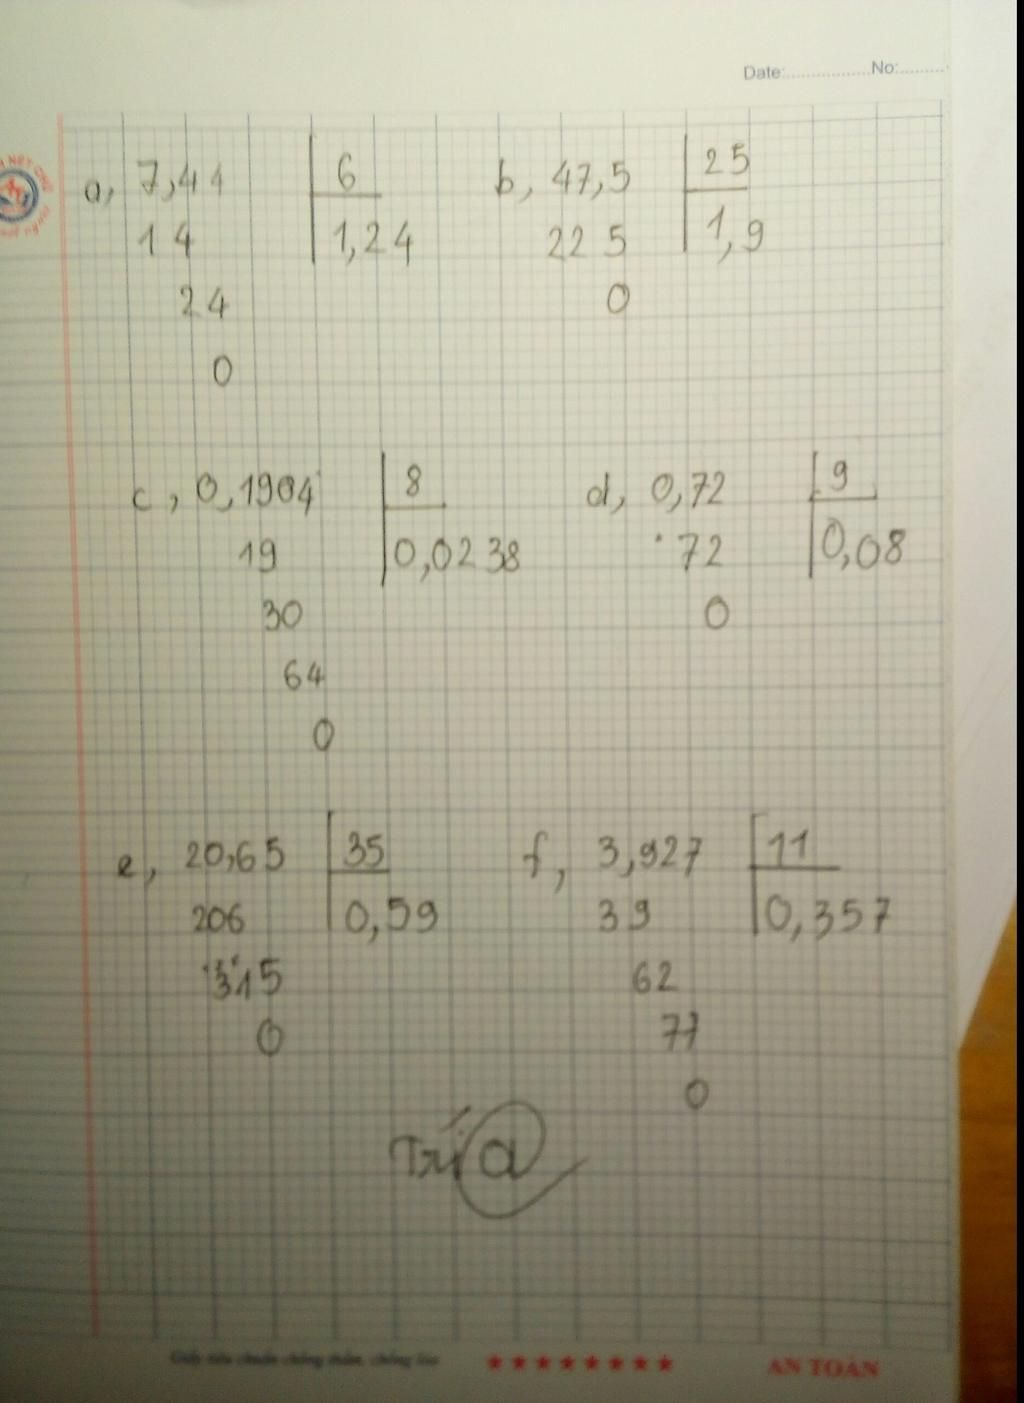 Date:................No:.........
a, 7,44 6 b, 47,5 25
14 1,24 225 1,9
24 0
0
c, 0,1904 8 d, 0,72 9
19 0,0238 72 0,08
30 0
64
0
e, 20,65 35 f, 3,927 11
206 0,59 39 0,357
315 62
0 77
0
Trí a
Giấy tiêu chuẩn chống thấm, chống lóa ★★★★★★★★ AN TOÀN